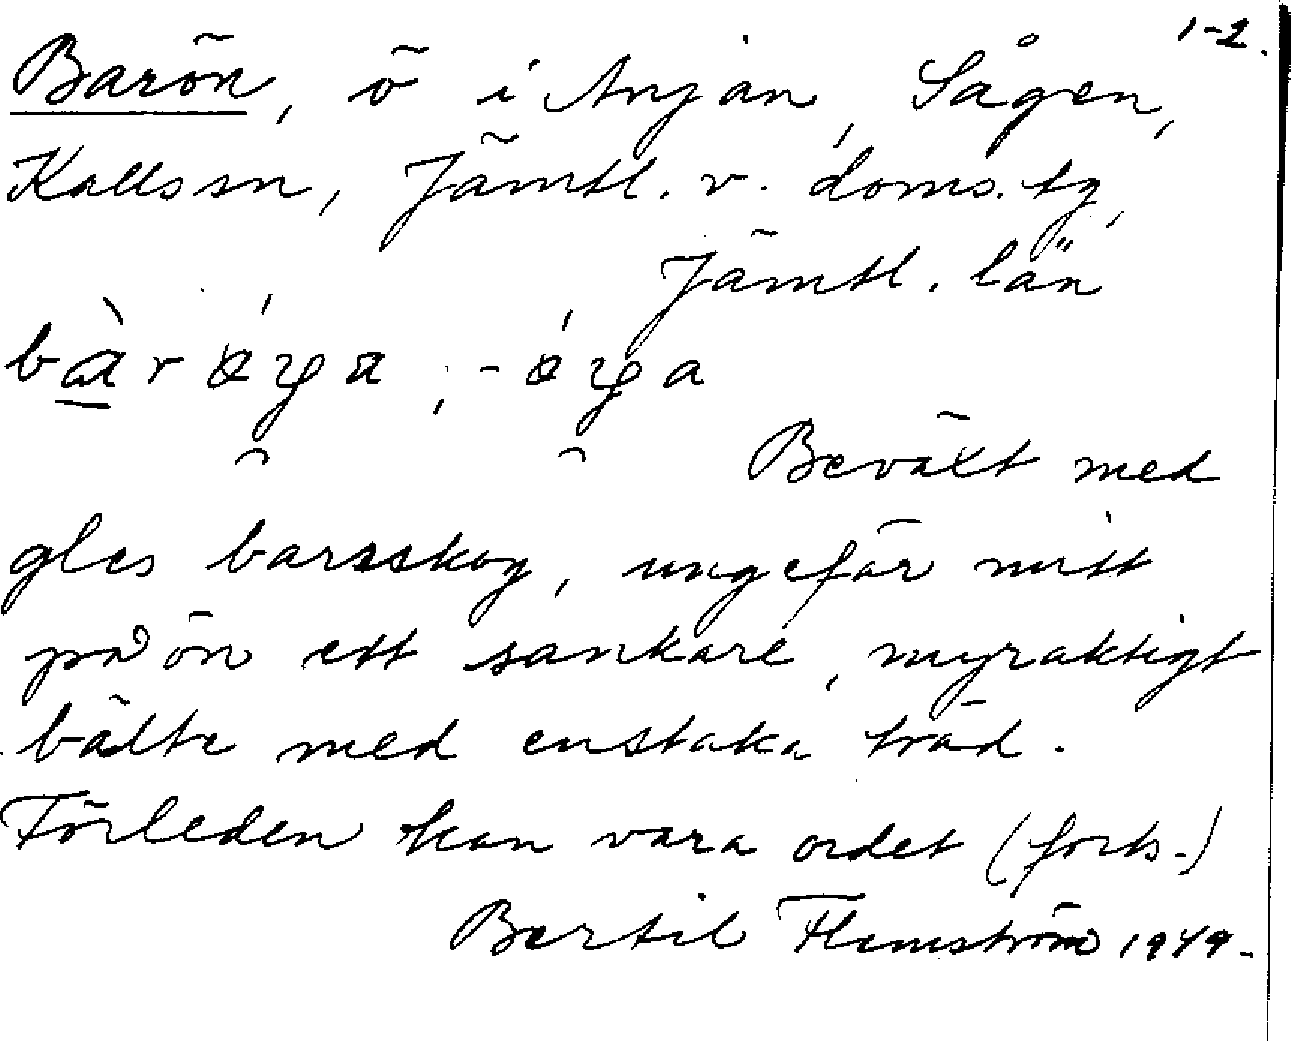 1-2.
Barön, ö i Anjan, Sågen,
Kalls sn, Jämtl. v. doms. tg,
Jämtl. län
Beväxt med
gles barrskog, ungefär mitt
på ön ett sankare, myraktigt
bälte med enstaka träd.
Förleden kan vara ordet (forts.)
Bertil Flemström 1949.